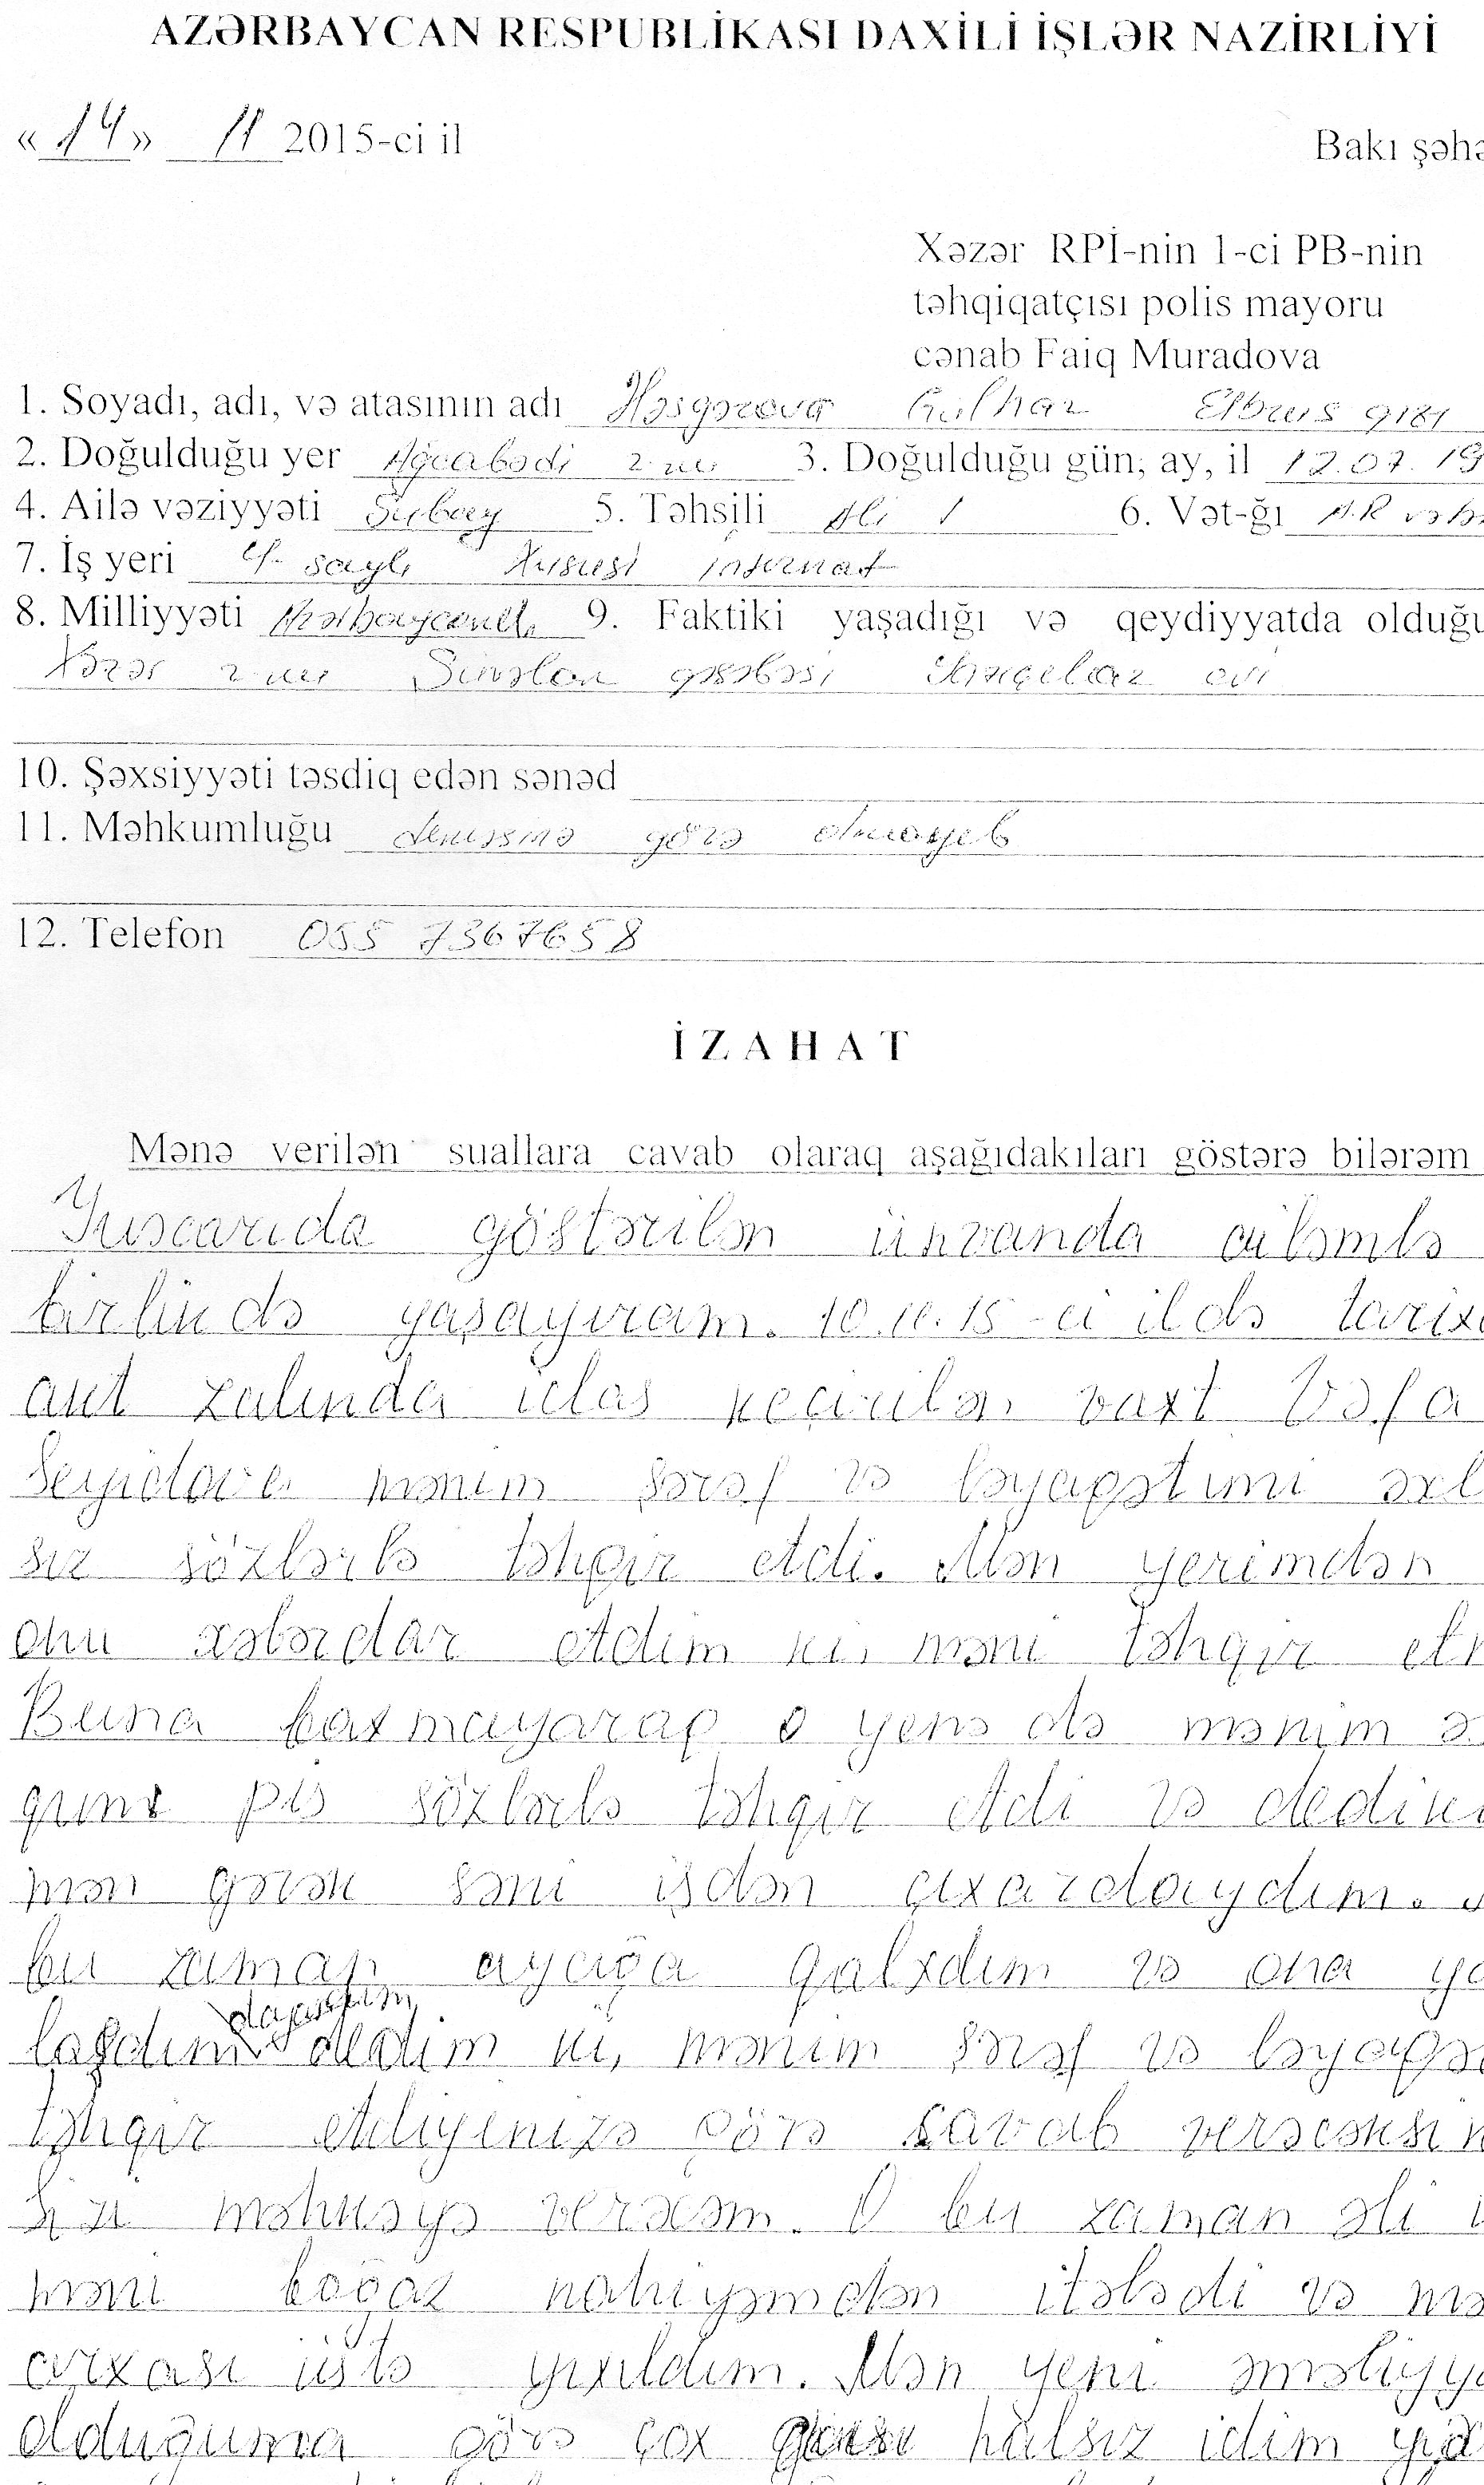 AZƏRBAYCAN RESPUBLİKASI DAXİLİ İŞLƏR NAZİRLİYİ
«14» 11 2015-ci il
Bakı şəhə
Xəzər RPİ-nin 1-ci PB-nin
təhqiqatçısı polis mayoru
cənab Faiq Muradova
1. Soyadı, adı, və atasının adı Həsgərova Gülnaz Elbrus qızı
2. Doğulduğu yer Ağcabədi r-nu 3. Doğulduğu gün, ay, il 12.07.19
4. Ailə vəziyyəti Subay 5. Təhsili Ali 6. Vət-ğı A.R
7. İş yeri saylı Xususi internat
8. Milliyyəti Azərbaycanlı 9. Faktiki yaşadığı və qeydiyyatda olduğu
Xəzər r-nu Şüvəlan qəsəbəsi evi
10. Şəxsiyyəti təsdiq edən sənəd
11. Məhkumluğu deməsinə görə olmayıb
12. Telefon 055 7367658
İZAHAT
Mənə verilən suallara cavab olaraq aşağıdakıları göstərə bilərəm
Yuxarıda göstərilən ünvanda ailəmlə
birlikdə yaşayıram. 10.11.15-ci ildə tarix
akt zalında iclas keçirilən vaxt Vəfa
Seyidova mənim şərəf və ləyaqətimi əxl
sız sözlərlə təhqir etdi. Mən yerimdən
onu xəbərdar etdim ki, məni təhqir et
Buna baxmayaraq o yenə də mənim ə
qımı pis sözlərlə təhqir etdi və dediki
mən gərək səni işdən çıxardaydım.
bu zaman ayağa qalxdım və ona ya
laşdım dedim ki, mənim şərəf və ləyaqə
təhqir etdiyinizə görə cavab verəcəksin
Sizi məhkəyə verəcəm. O bu zaman əli i
məni boğaz nahiyəmdən itələdi və mə
arxası üstə yıxıldım. Mən yeni əməliyya
olduğuma görə çox halsız idim